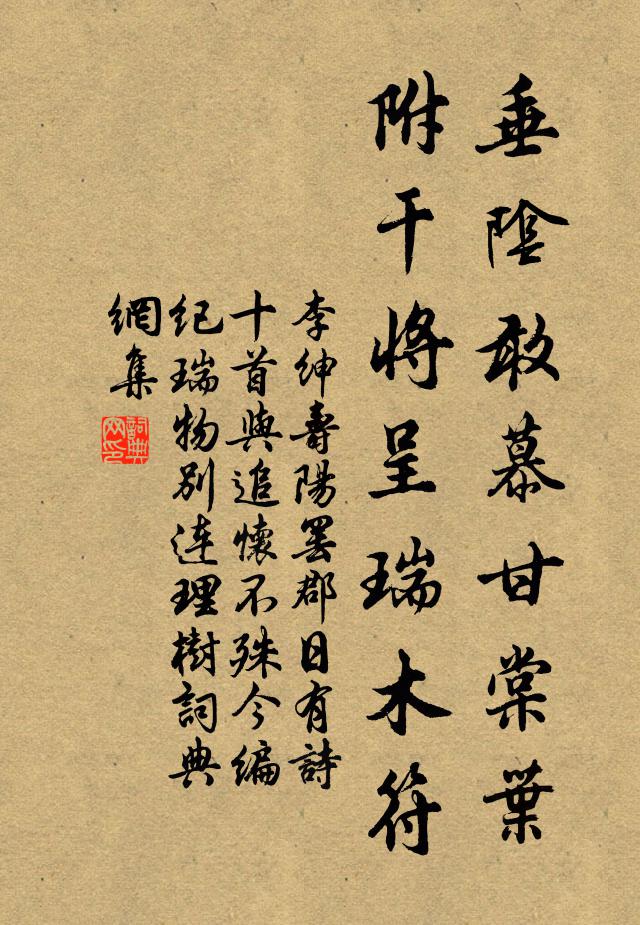 垂陰敢慕甘棠葉
附干將呈瑞木符
李紳壽陽罷郡日有詩
十首與追懷不殊今編
紀瑞物別連理樹詞典
網集
詞典
网印